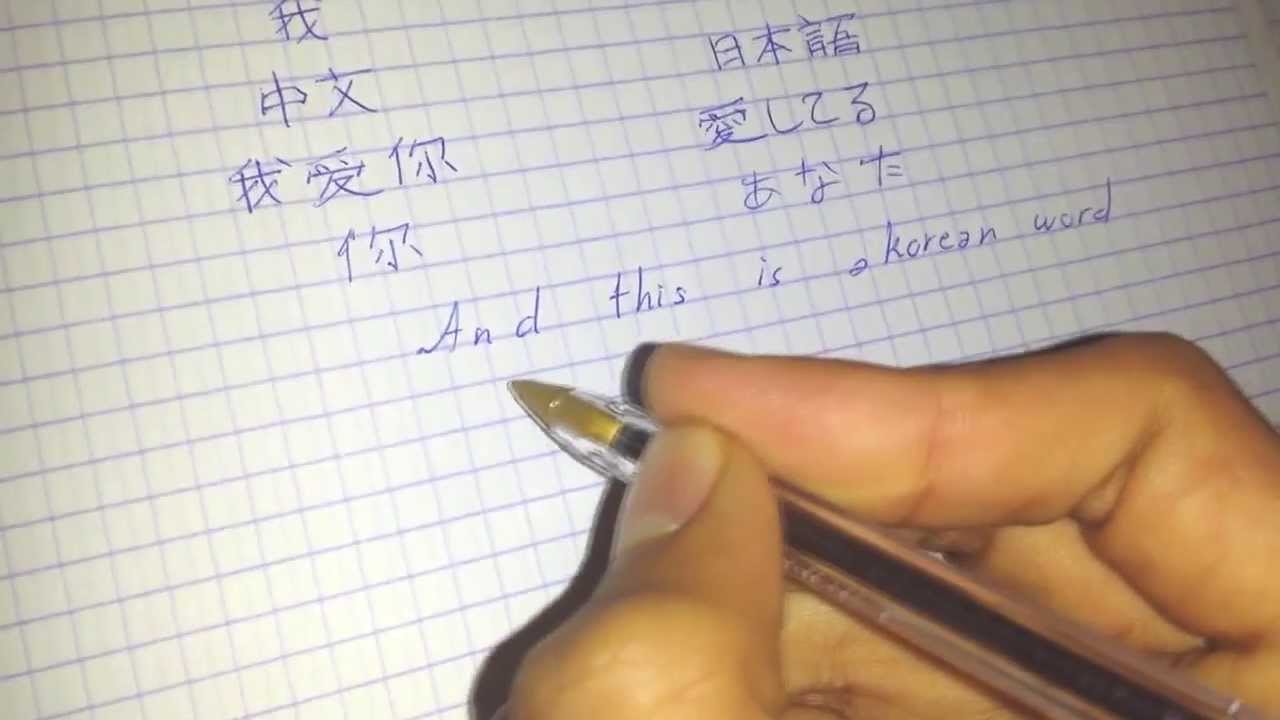 我
中文
我爱你
你
日本語
愛してる
あなた
And this is a korean word